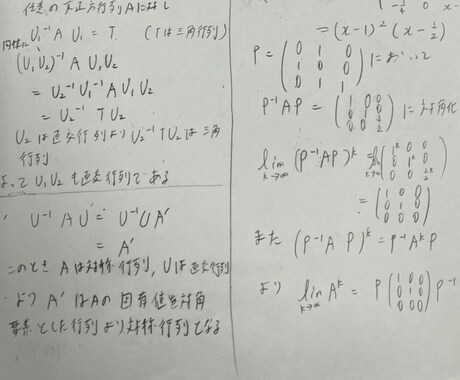 任意の正方行列Aに対し
U₁⁻¹ A U₁ = T. (Tは三角行列)
同様に
(U₁U₂)⁻¹ A U₁U₂
= U₂⁻¹ U₁⁻¹ A U₁ U₂
= U₂⁻¹ T U₂
U₂は直交行列よりU₂⁻¹TU₂は三角
行列
よってU₁U₂も直交行列である
U⁻¹ A U = U⁻¹UA'
= A'
このとき Aは対称行列, Uは直交行列
より A'はAの固有値を対角
要素とした行列より対称行列となる
-1/4 0 x-
= (x-1)² (x-1/2)
P = (0 1 0
1 0 0
0 1 1) において
P⁻¹AP = (1 0 0
0 1 0
0 0 1/2) に対角化
lim k→∞ (P⁻¹AP)ᵏ = lim k→∞ (1ᵏ 0 0
0 1ᵏ 0
0 0 1/2ᵏ)
= (1 0 0
0 1 0
0 0 0)
また (P⁻¹A P)ᵏ = P⁻¹AᵏP
より lim k→∞ Aᵏ = P (1 0 0
0 1 0
0 0 0) P⁻¹